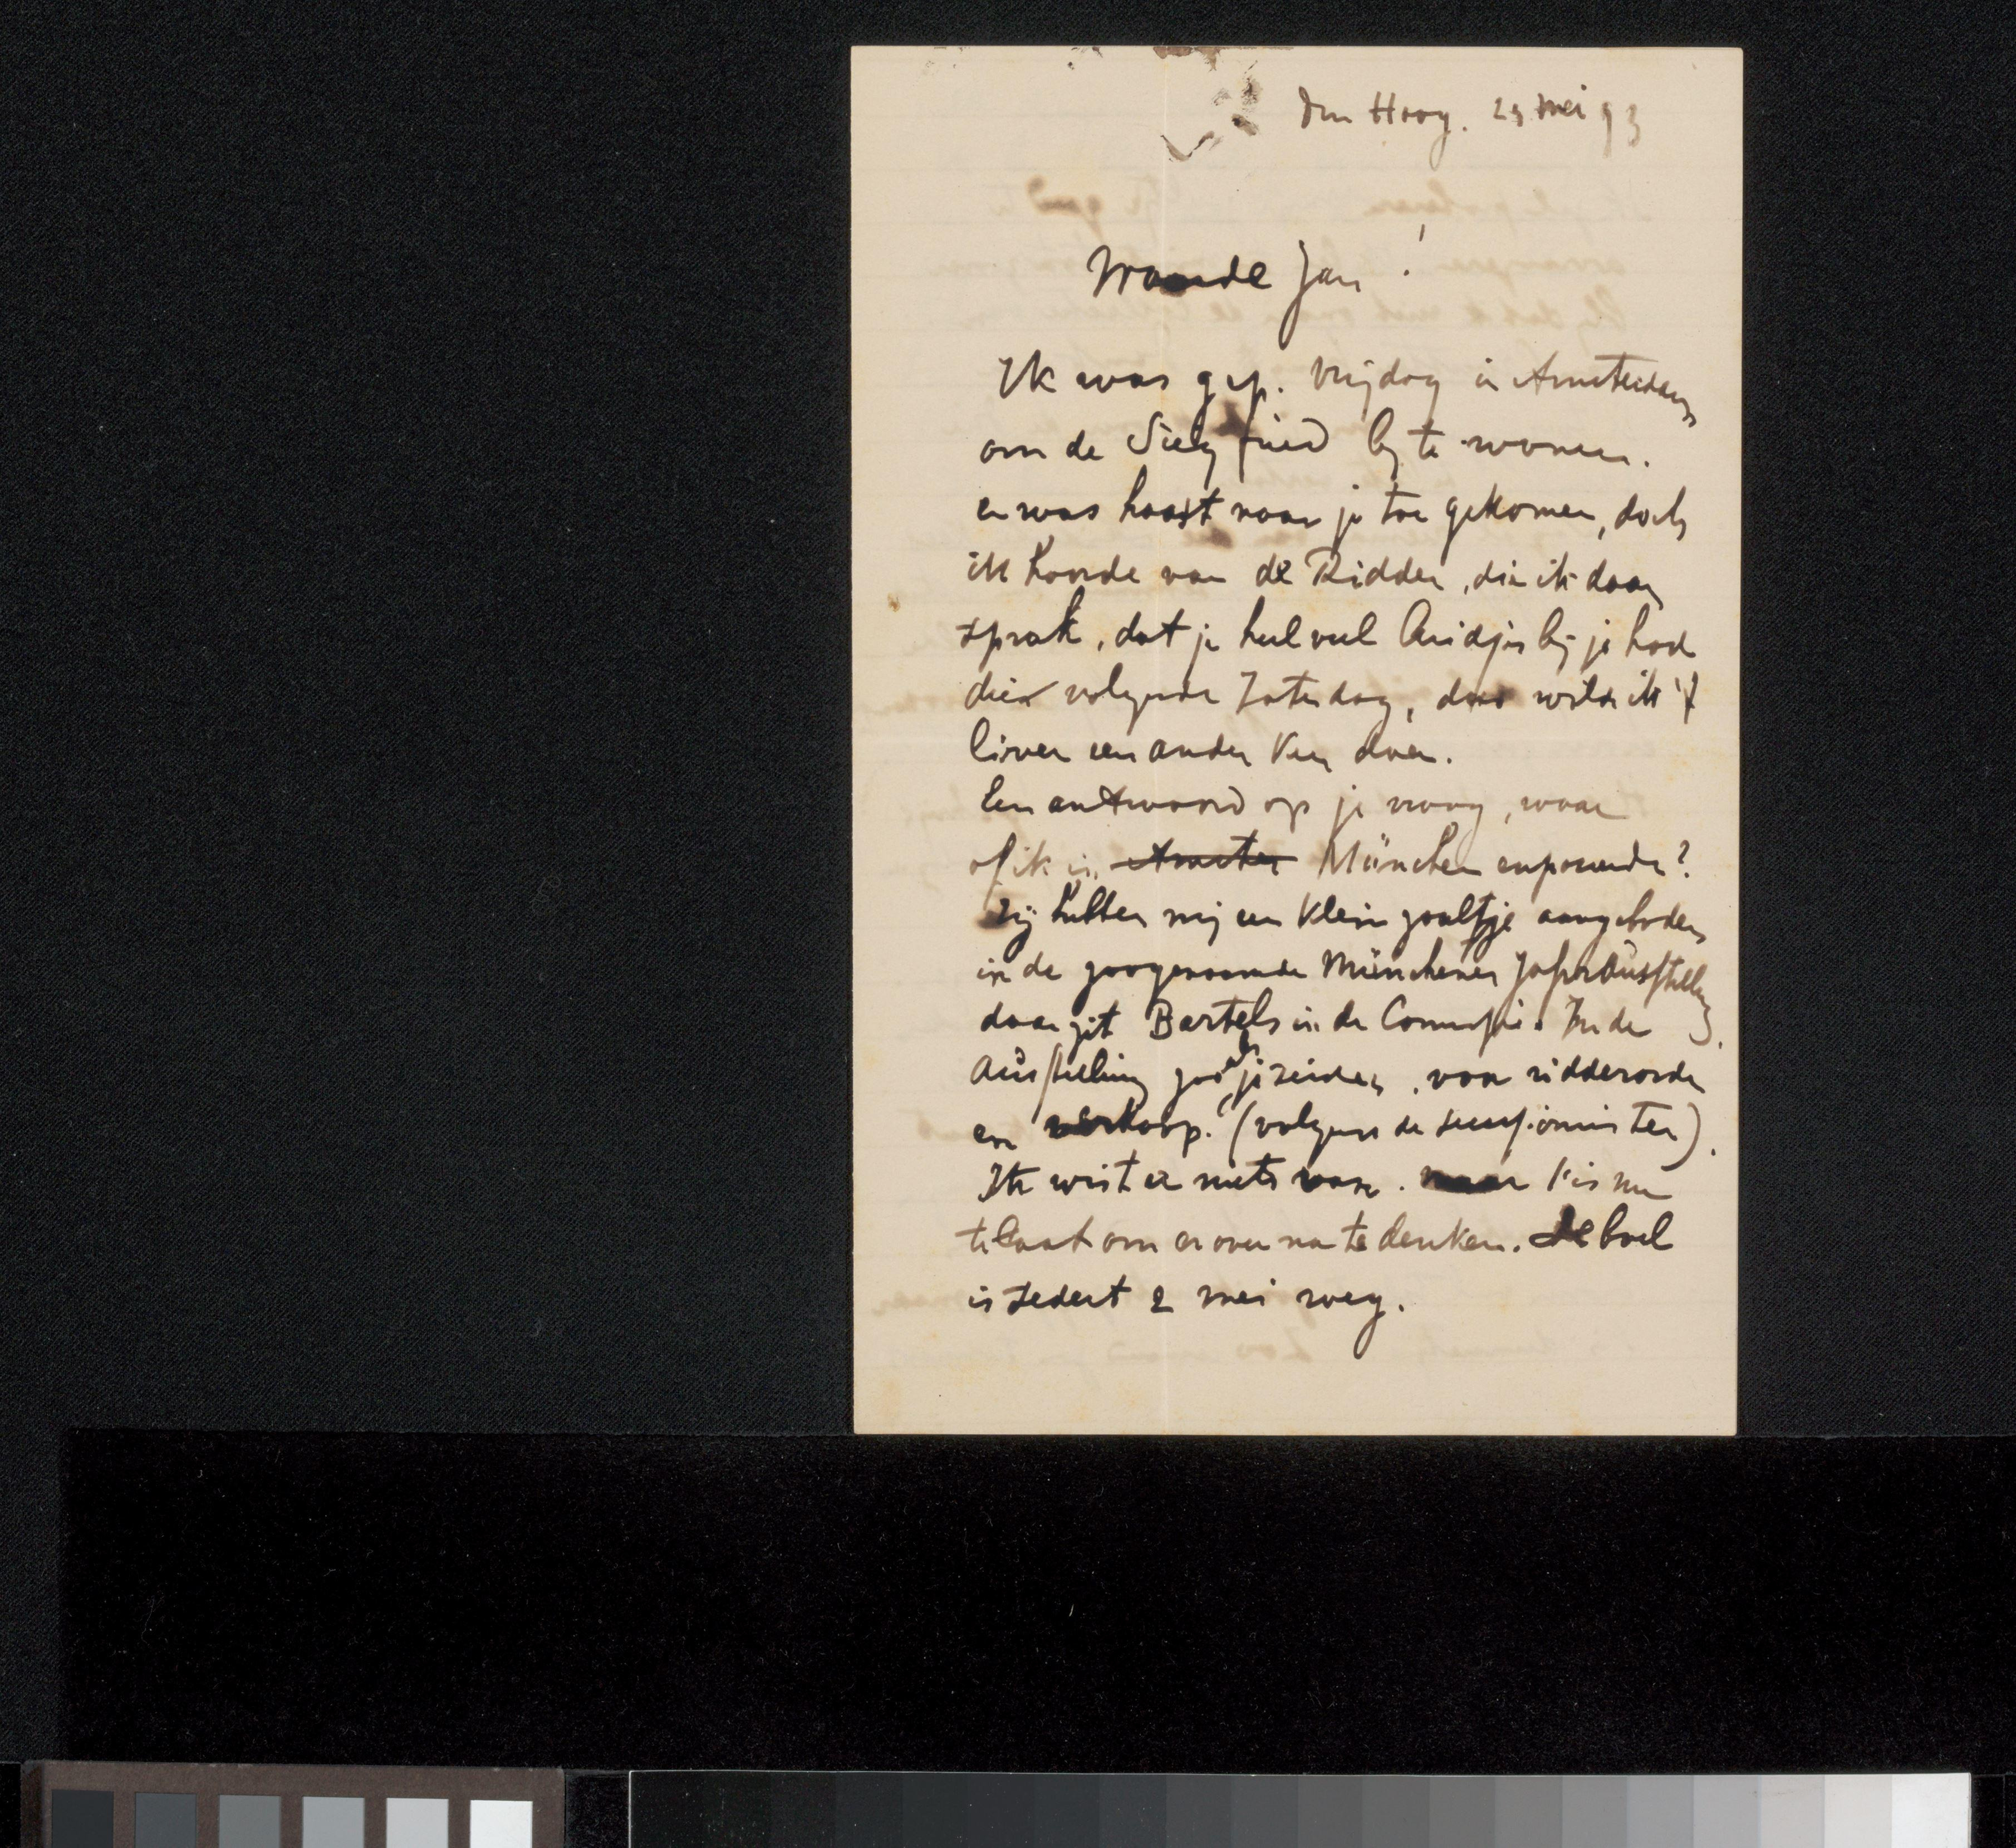 Den Haag. 23 Mei 93
Waarde Jan!
Ik was gep. Vrijdag in Amsterdam
om de Siegfried bij te wonen.
en was haast naar je toe gekomen, doch
ik hoorde van de Ridder, die ik daar
sprak, dat je heel veel luidjes bij je had
dien volgende Zaterdag, dus wilde ik 't
liever een ander keer doen.
Een antwoord op je vraag, waar
of ik in Amster München exposeerde?
Zij hebben mij een klein zaaltje aangeboden
in de zoogenaamde Münchener Jahrausstellung
daar zit Bartels in de Commissie. In de
Ausstellung zooals je zeide, voor ridderorde
en verkoop. (volgens de secessionisten).
Ik wist er niets van. maar 't is nu
te laat om er over na te denken. De boel
is sedert 2 mei weg.